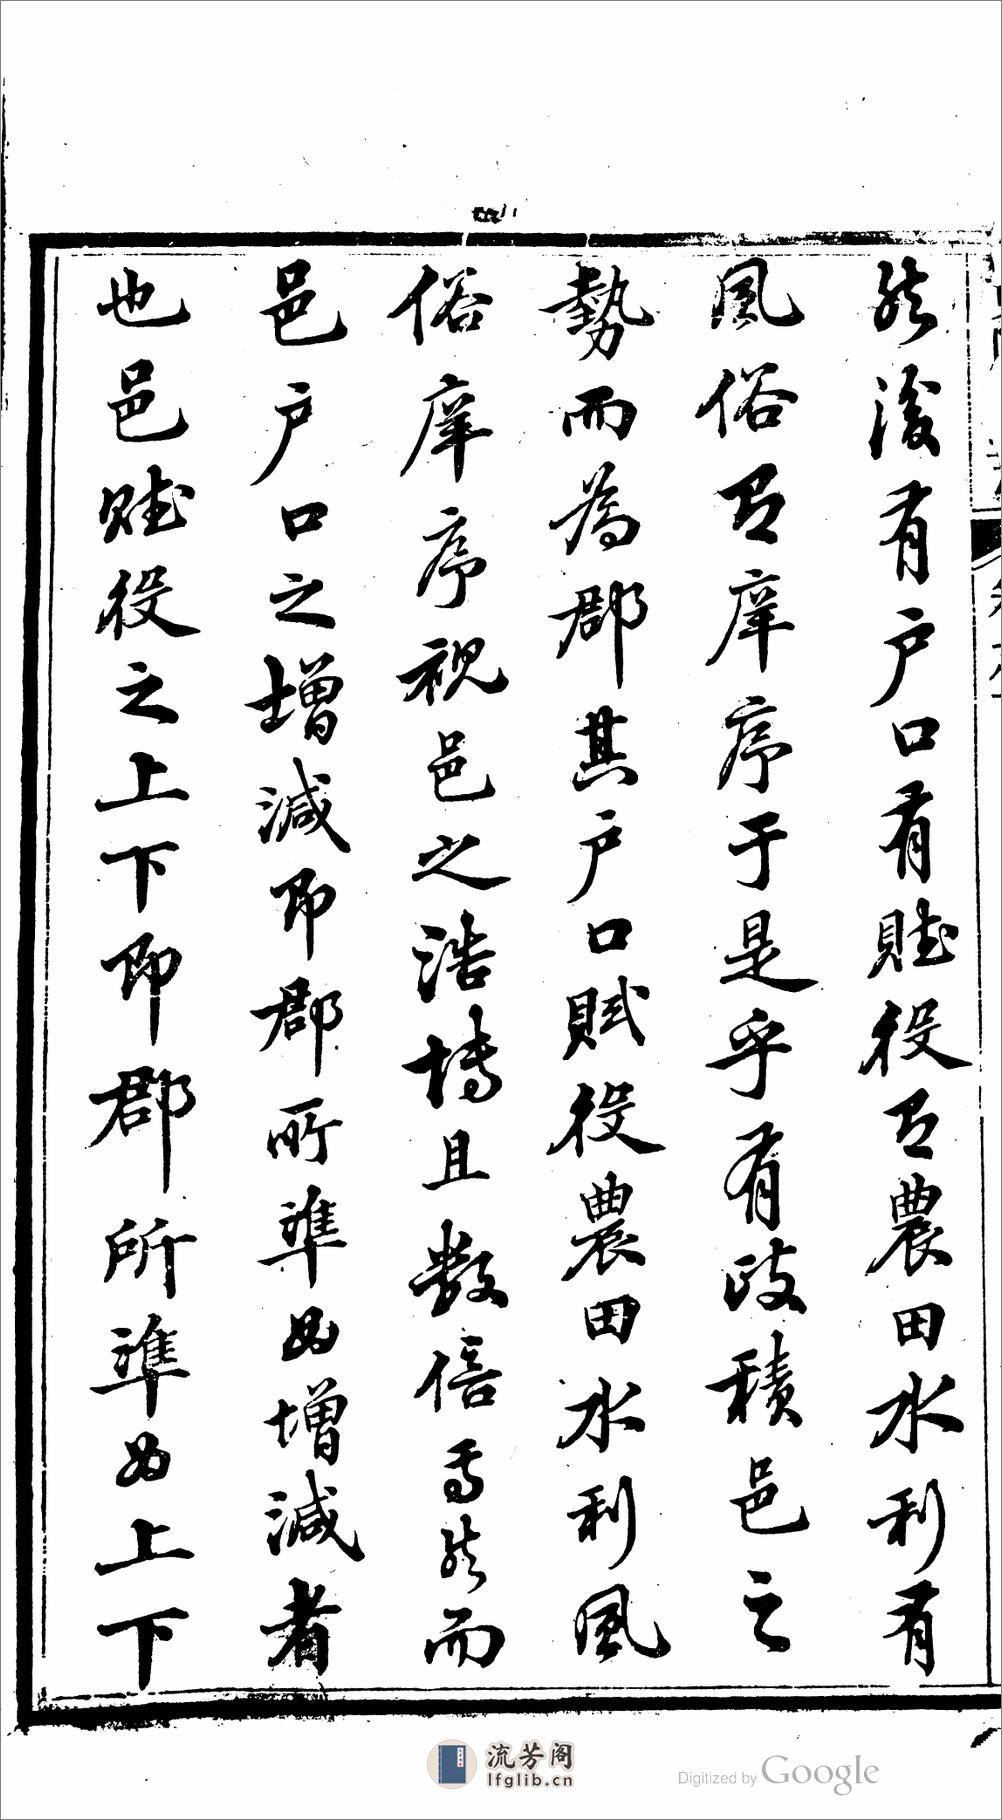 然後有戶口有賦役有農田水利有
風俗有庠序于是乎有政積邑之
勢而為郡其戶口賦役農田水利風
俗庠序視邑之浩博且數倍焉然而
邑戶口之增減即郡所準以增減者
也邑賦役之上下即郡所準以上下
流芳阁
lfglib.cn
Digitized by Google